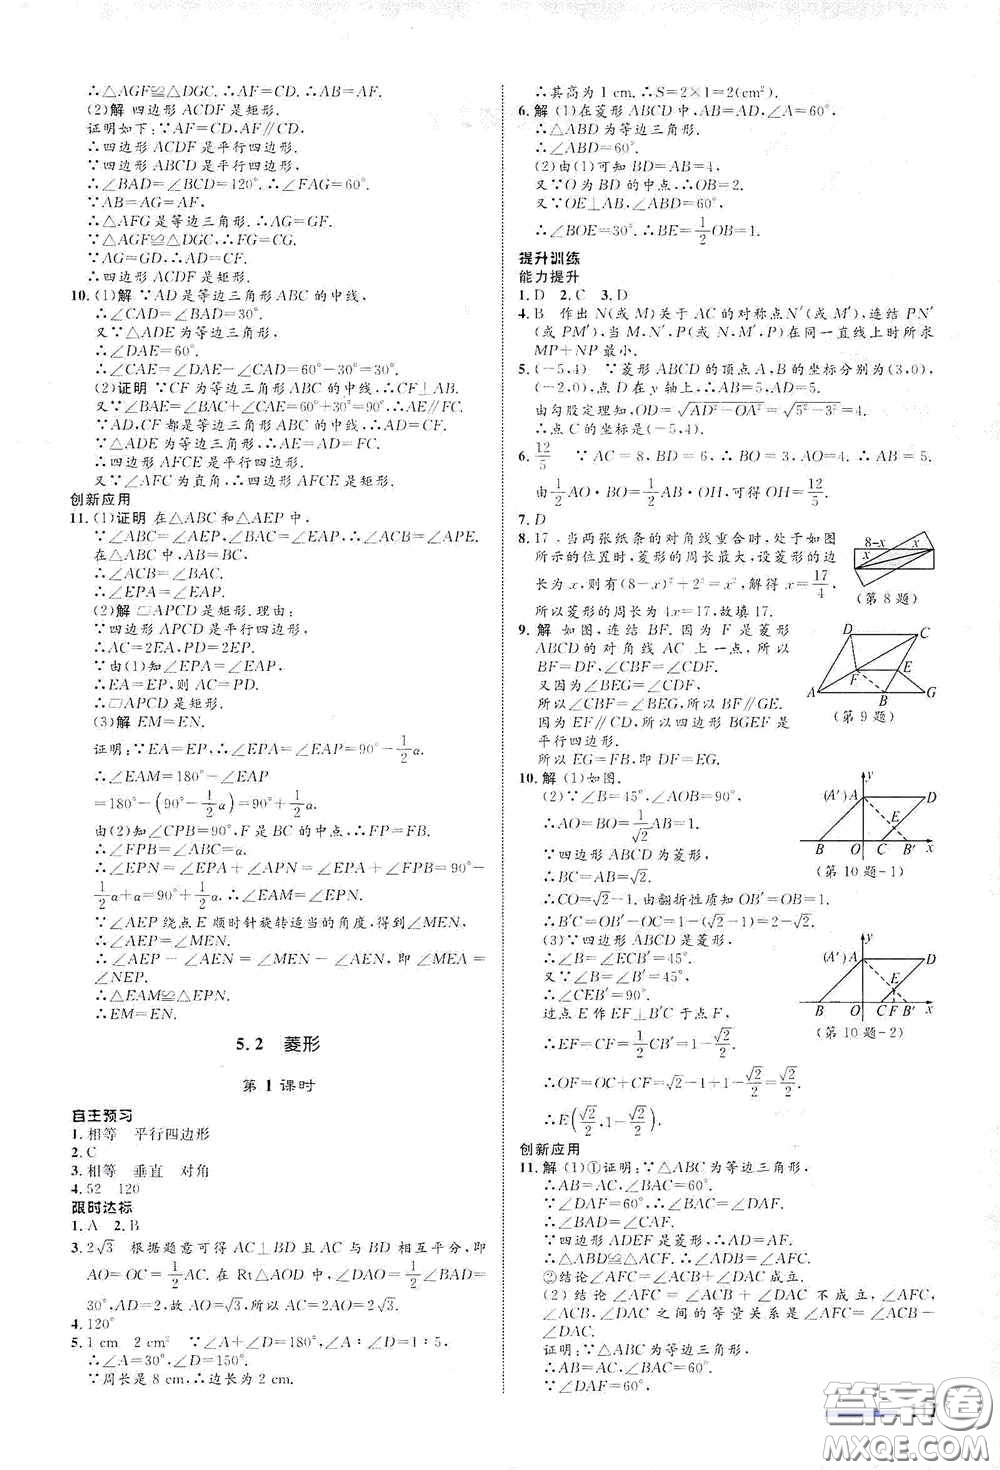 ∴△AGF≌△DGC.∴AF=CD.∴AB=AF.
(2)解 四边形 ACDF 是矩形.
证明如下:∵AF=CD,AF∥CD,
∴四边形 ACDF 是平行四边形.
∵四边形 ABCD 是平行四边形,
∴∠BAD=∠BCD=120°.∴∠FAG=60°.
∵AB=AG=AF,
∴△AFG 是等边三角形.∴AG=GF.
∵△AGF≌△DGC,∴FG=CG.
∵AG=GD,∴AD=CF.
∴四边形 ACDF 是矩形.
10.(1)解 ∵AD 是等边三角形 ABC 的中线,
∴∠CAD=∠BAD=30°.
又∵△ADE 为等边三角形,
∴∠DAE=60°.
∴∠CAE=∠DAE-∠CAD=60°-30°=30°.
(2)证明 ∵CF 为等边三角形 ABC 的中线,∴CF⊥AB.
又∵∠BAE=∠BAC+∠CAE=60°+30°=90°,∴AE∥FC.
∵AD,CF 都是等边三角形 ABC 的中线,∴AD=CF.
∵△ADE 为等边三角形,∴AE=AD=FC.
∴四边形 AFCE 是平行四边形.
又∵∠AFC 为直角,∴四边形 AFCE 是矩形.
创新应用
11.(1)证明 在△ABC 和△AEP 中,
∵∠ABC=∠AEP,∠BAC=∠EAP,
∴∠ACB=∠APE.
在△ABC 中,∵AB=BC,
∴∠ACB=∠BAC.
∴∠EPA=∠EAP.
(2)解 ▱APCD 是矩形.理由:
∵四边形 APCD 是平行四边形,
∴AC=2EA,PD=2EP.
∵由(1)知∠EPA=∠EAP,
∴EA=EP,则 AC=PD.
∴▱APCD 是矩形.
(3)解 EM=EN.
证明:∵EA=EP,∴∠EPA=∠EAP=90°-1/2α.
∴∠EAM=180°-∠EAP
=180°-(90°-1/2α)=90°+1/2α.
由(2)知∠CPB=90°,F 是 BC 的中点,∴FP=FB.
∴∠FPB=∠ABC=α.
∴∠EPN=∠EPA+∠APN=∠EPA+∠FPB=90°-
1/2α+α=90°+1/2α.∴∠EAM=∠EPN.
∵∠AEP 绕点 E 顺时针旋转适当的角度,得到∠MEN,
∴∠AEP=∠MEN.
∴∠AEP-∠AEN=∠MEN-∠AEN,即∠MEA=
∠NEP.
∴△EAM≌△EPN.
∴EM=EN.
5.2 菱形
第 1 课时
自主预习
1.相等 平行四边形
2.C
3.相等 垂直 对角
4.52 120
限时达标
1.A 2.B
3.2√3 根据题意可得 AC⊥BD 且 AC 与 BD 互相平分,即
AO=OC=1/2AC.在 Rt△AOD 中,∠DAO=1/2∠BAD=
30°,AD=2,故 AO=√3,所以 AC=2AO=2√3.
4.120°
5.1 cm 2 cm² ∵∠A+∠D=180°,∠A∶∠D=1∶5,
∴∠A=30°,∠D=150°.
∵周长是 8 cm,∴边长为 2 cm.
∴其高为 1 cm.∴S=2×1=2(cm²).
6.解 (1)在菱形 ABCD 中,AB=AD,∠A=60°,
∴△ABD 为等边三角形.
∴∠ABD=60°.
(2)由(1)可知 BD=AB=4,
又∵O 为 BD 的中点,∴OB=2.
又∵OE⊥AB,∠ABD=60°,
∴∠BOE=30°.∴BE=1/2OB=1.
提升训练
能力提升
1.D 2.C 3.D
4.B 作出 N(或 M)关于 AC 的对称点 N′(或 M′),连结 PN′
(或 PM′),当 M,N′,P(或 N,M′,P)在同一直线上时所求
MP+NP 最小.
5.(-5,4) ∵菱形 ABCD 的顶点 A,B 的坐标分别为(3,0),
(-2,0),点 D 在 y 轴上,∴AB=5,AD=5.
由勾股定理知,OD=√(AD²-OA²)=√(5²-3²)=4.
∴点 C 的坐标是(-5,4).
6.12/5 ∵AC=8,BD=6,∴BO=3,AO=4.∴AB=5.
由1/2AO·BO=1/2AB·OH,可得 OH=12/5.
7.D
8.17 当两张纸条的对角线重合时,处于如图
所示的位置时,菱形的周长最大,设菱形的边
长为 x,则有(8-x)²+2²=x²,解得 x=17/4,
所以菱形的周长为 4x=17,故填 17.
8-x x
x
(第 8 题)
9.解 如图,连结 BF.因为 F 是菱形
ABCD 的对角线 AC 上一点,所以
BF=DF,∠CBF=∠CDF.
又因为∠BEG=∠CDF,
所以∠CBF=∠BEG,所以 BF∥GE.
因为 EF∥CD,所以四边形 BGEF 是
平行四边形.
所以 EG=FB,即 DF=EG.
D C
F E
A B G
(第 9 题)
10.解 (1)如图.
(2)∵∠B=45°,∠AOB=90°,
∴AO=BO=1/√2AB=1.
∵四边形 ABCD 为菱形,
∴BC=AB=√2.
∴CO=√2-1.由翻折性质知 OB′=OB=1.
∴B′C=OB′-OC=1-(√2-1)=2-√2.
(3)∵四边形 ABCD 是菱形,
∴∠B=∠ECB′=45°.
又∵∠B=∠B′=45°,
∴∠CEB′=90°.
过点 E 作 EF⊥B′C 于点 F,
∴EF=CF=1/2CB′=1-√2/2.
∴OF=OC+CF=√2-1+1-√2/2=√2/2.
∴E(√2/2,1-√2/2).
y
(A′)A D
E
B O C B′ x
(第 10 题-1)
y
(A′)A D
E
B O C F B′ x
(第 10 题-2)
创新应用
11.解 (1)①证明:∵△ABC 为等边三角形,
∴AB=AC,∠BAC=60°.
∵∠DAF=60°,∴∠BAC=∠DAF.
∴∠BAD=∠CAF.
∵四边形 ADEF 是菱形,∴AD=AF.
∴△ABD≌△ACF.∴∠ADB=∠AFC.
②结论∠AFC=∠ACB+∠DAC 成立.
(2)结论∠AFC=∠ACB+∠DAC 不成立,∠AFC,
∠ACB,∠DAC 之间的等量关系是∠AFC=∠ACB-
∠DAC.
证明:∵△ABC 为等边三角形,
∴AB=AC,∠BAC=60°.
∵∠DAF=60°,
答案圈
MXQE.COM